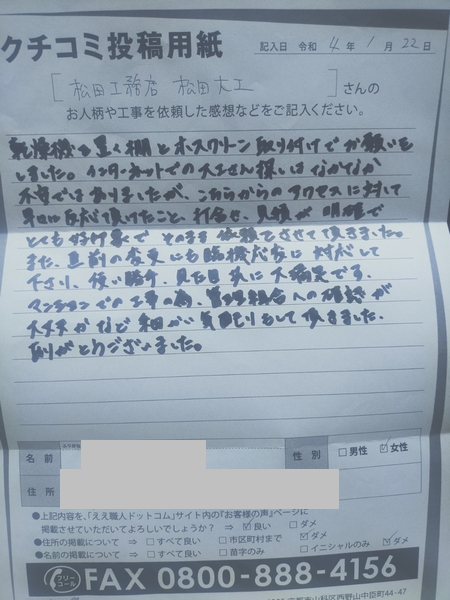 クチコミ投稿用紙
記入日 令和 4年 1月 22日
[松田工務店 松田大工]さんの
お人柄や工事を依頼した感想などをご記入ください。
乾燥機を置く棚とホスクリーン取り付けでお願いを
しました。インターネットでの大工さん探しはなかなか
不安ではありましたが、こちらからのアクセスに対して
早急に反応頂けたこと、打合せ、見積が明確で
とても好印象で そのまま依頼とさせて頂きました。
また、直前の変更にも臨機応変に対応して
下さり、使い勝手、見た目共に大満足です。
マンションでの工事の為、管理組合への確認が
大丈夫かなど細かい気配りもして頂きました。
ありがとうございました。
名前
性別
□男性 ☑女性
住所
●上記内容を、「ええ職人ドットコム」サイト内の『お客様の声』ページに
掲載させていただいてよろしいでしょうか? ⇒ ☑良い □ダメ
●住所の掲載について ⇒ □すべて良い □市区町村まで ☑ダメ
●名前の掲載について ⇒ □すべて良い □苗字のみ □イニシャルのみ ☑ダメ
フリーコール FAX 0800-888-4156
京都市山科区西野山中臣町44-47